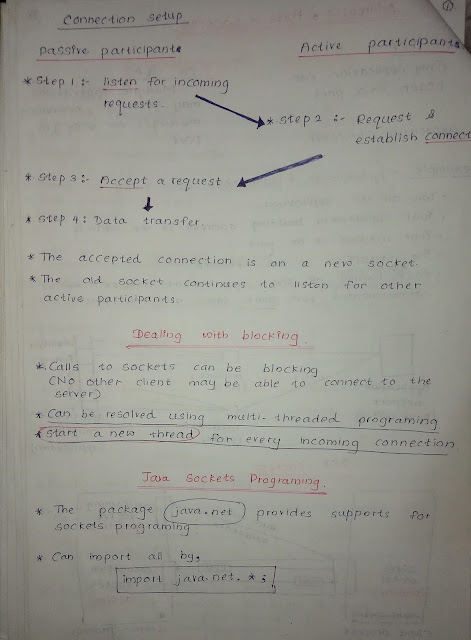 Connection setup
Passive participant
Active participant
* Step 1 :- listen for incoming
requests.
* Step 2 :- Request &
establish connect
* Step 3 :- Accept a request
* Step 4 : Data transfer.
* The accepted connection is on a new socket.
* The old socket continues to listen for other
active participants.
Dealing with blocking.
* Calls to sockets can be blocking
(No other client may be able to connect to the
server)
* Can be resolved using multi-threaded programing
* start a new thread for every incoming connection
Java Sockets Programing.
* The package java.net provides supports for
sockets programing
* Can import all by;
import java.net.*;